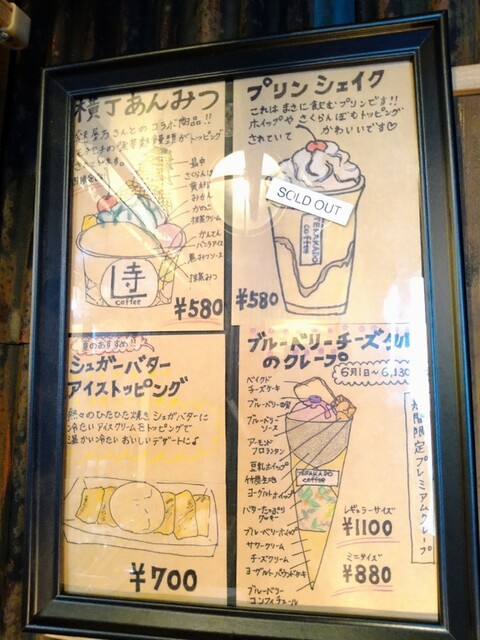 横丁あんみつ
さんとのコラボ商品!!
トッピング
最中
さくらんぼ
みかん
抹茶クリーム
かんてん
バニラアイス
抹茶みつ
侍
coffee
¥580
プリンシェイク
これはまさに飲むプリンです!!
ホイップやさくらんぼもトッピング
されていて かわいいです♡
SOLD OUT
TERAKADO
coffee
¥580
夏のおすすめ!!
シュガーバター
アイストッピング
熱々のひたひた焼きシュガーバターに
冷たいアイスクリームをトッピングで
温かい冷たいおいしいデザートに♪
¥700
ブルーベリーチーズ
のクレープ
6月1日~6.30
ベイクド
チーズケーキ
ブルーベリー
ブルーベリー
ソース
アーモンド
フロランタン
豆乳ホイップ
竹炭生地
ヨーグルトホイップ
バターたっぷり
クッキー
ブルーベリーホイップ
サワークリーム
チーズクリーム
ヨーグルトパウンドケーキ
ブルーベリー
コンフィチュール
TERAKADO
coffee
限定プレミアムクレープ
レギュラーサイズ
¥1100
ミニサイズ
¥880